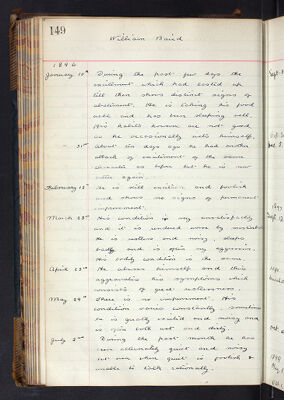 149
William Baird
1896
January 10th During the past few days the
excitement which had lasted up
till then shows distinct signs of
abatement. He is taking his food
well and has been sleeping well.
His habits however are not good
as he occasionally wets himself.
" 31st About ten days ago he had another
attack of excitement of the same
character as before but he is now
quiet again.
February 12th He is still and foolish
and shows no signs of permanent
improvement.
March 23rd His condition is very unsatisfactory
and it is rendered worse by
He is restless and noisy, sleeps
badly and is often very aggressive.
His bodily condition is the same.
April 23rd He abuses himself and this
aggravates his symptoms which
consists of great restlessness.
May 29th There is no improvement. His
condition varies constantly, sometimes
he is greatly excited and noisy and
is often both wet and dirty.
July 2nd During the past month he has
been alternately quiet and noisy
but even when quiet is foolish &
unable to talk rationally.